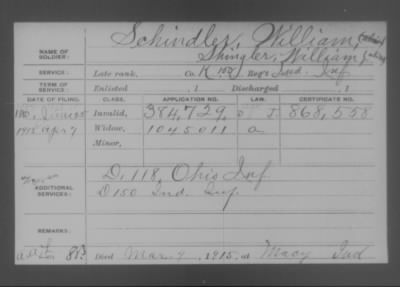 Schindler, William, (alias)
NAME OF SOLDIER: Shingler, William
SERVICE: Late rank, Co. K 150, Reg't Ind. Inf
TERM OF SERVICE: Enlisted , 1 Discharged , 1
DATE OF FILING. CLASS. APPLICATION NO. LAW. CERTIFICATE NO.
Invalid, 384,729 868,558
1915 Apr 7 Widow, 1045011 a
Minor,
D, 118, Ohio Inf
ADDITIONAL SERVICES: D 150 Ind. Inf.
REMARKS:
Died Mar. 7, 1915, at Macy Ind